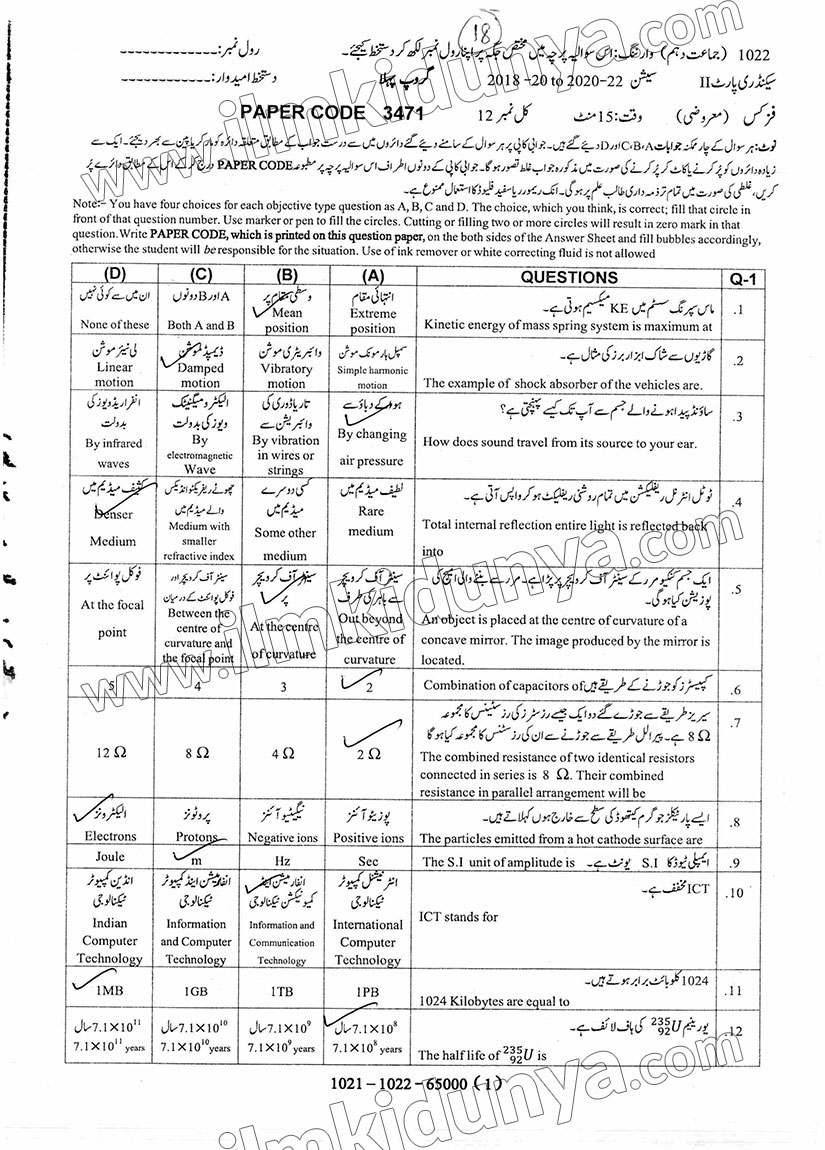 18
1022 (جماعت دہم) وارننگ: اس سوالیہ پرچہ میں مختص جگہ پر اپنا رول نمبر لکھ کر دستخط کیجئے۔ رول نمبر:
سیکنڈری پارٹ II سیشن 2018-20 to 2020-22 گروپ پہلا دستخط امیدوار:
فزکس (معروضی) وقت: 15 منٹ کل نمبر 12 PAPER CODE 3471
نوٹ: ہر سوال کے چار ممکنہ جوابات C،B،A اور D دیئے گئے ہیں۔ جوابی کاپی پر ہر سوال کے سامنے دیئے گئے دائروں میں سے درست جواب کے مطابق متعلقہ دائرہ کو مارکر یا پین سے بھر دیجئے۔ ایک سے
زیادہ دائروں کو پر کرنے یا کاٹ کر پر کرنے کی صورت میں مذکورہ جواب غلط تصور ہوگا۔ جوابی کاپی کے دونوں اطراف اس سوالیہ پرچہ پر مطبوعہ PAPER CODE درج کر کے اس کے مطابق دائرے پر
کریں، غلطی کی صورت میں تمام تر ذمہ داری طالب علم پر ہوگی۔ انک ریمور یا سفید فلیوڈ کا استعمال ممنوع ہے۔
Note:- You have four choices for each objective type question as A, B, C and D. The choice, which you think, is correct; fill that circle in
front of that question number. Use marker or pen to fill the circles. Cutting or filling two or more circles will result in zero mark in that
question. Write PAPER CODE, which is printed on this question paper, on the both sides of the Answer Sheet and fill bubbles accordingly,
otherwise the student will be responsible for the situation. Use of ink remover or white correcting fluid is not allowed
(D) (C) (B) (A) QUESTIONS Q-1
ان میں سے کوئی نہیں A اور B دونوں وسطی مقام پر انتہائی مقام ماس سپرنگ سسٹم میں KE میکسیمم ہوتی ہے۔ .1
None of these Both A and B Mean position Extreme position Kinetic energy of mass spring system is maximum at
لی نیئر موشن ڈیمپڈ موشن وائبریٹری موشن سمپل ہارمونک موشن گاڑیوں سے شاک ابزاربرز کی مثال ہے۔ .2
Linear motion Damped motion Vibratory motion Simple harmonic motion The example of shock absorber of the vehicles are.
انفراریڈ ویوز کی بدولت الیکٹرومیگنیٹک ویوز کی بدولت تار یا ڈوری کی وائبریشن سے ہوا کے دباؤ سے ساؤنڈ پیدا ہونے والے جسم سے آپ تک کیسے پہنچتی ہے؟ .3
By infrared waves By electromagnetic Wave By vibration in wires or strings By changing air pressure How does sound travel from its source to your ear.
کثیف میڈیم میں چھوٹے ریفریکٹو انڈیکس والے میڈیم میں کسی دوسرے میڈیم میں لطیف میڈیم میں ٹوٹل انٹرنل ریفلیکشن میں تمام روشنی ریفلیکٹ ہو کر واپس آتی ہے۔ .4
Denser Medium Medium with smaller refractive index Some other medium Rare medium Total internal reflection entire light is reflected back into
فوکل پوائنٹ پر سینٹر آف کرویچر اور فوکل پوائنٹ کے درمیان سینٹر آف کرویچر پر سینٹر آف کرویچر سے باہر کی طرف ایک جسم کنکیو مرر کے سینٹر آف کرویچر پر پڑا ہے۔ مرر سے بننے والی امیج کی پوزیشن کیا ہوگی۔ .5
At the focal point Between the centre of curvature and the focal point At the centre of curvature Out beyond the centre of curvature An object is placed at the centre of curvature of a concave mirror. The image produced by the mirror is located.
5 4 3 2 Combination of capacitors of کپیسٹرز کو جوڑنے کے طریقے ہیں .6
سیریز طریقے سے جوڑے گئے دو ایک جیسے رزسٹرز کی رزسٹینس کا مجموعہ .7
8 Ω ہے۔ پیرالل طریقے سے جوڑنے سے ان کی رزسٹنس کا مجموعہ کیا ہوگا
12 Ω 8 Ω 4 Ω 2 Ω The combined resistance of two identical resistors
connected in series is 8 Ω. Their combined
resistance in parallel arrangement will be
الیکٹرونز پروٹونز نیگیٹیو آئنز پوزیٹو آئنز ایسے پارٹیکلز جو گرم کیتھوڈ کی سطح سے خارج ہوں کہلاتے ہیں۔ .8
Electrons Protons Negative ions Positive ions The particles emitted from a hot cathode surface are
Joule m Hz Sec The S.I unit of amplitude is ایمپلی ٹیوڈ کا S.I یونٹ ہے۔ .9
انڈین کمپیوٹر ٹیکنالوجی انفارمیشن اینڈ کمپیوٹر ٹیکنالوجی انفارمیشن اینڈ کمیونیکیشن ٹیکنالوجی انٹرنیشنل کمپیوٹر ٹیکنالوجی ICT مخفف ہے۔ .10
Indian Computer Technology Information and Computer Technology Information and Communication Technology International Computer Technology ICT stands for
1024 کلوبائٹ برابر ہوتے ہیں۔ .11
1MB 1GB 1TB 1PB 1024 Kilobytes are equal to
7.1×10¹¹ سال 7.1×10¹⁰ سال 7.1×10⁹ سال 7.1×10⁸ سال یورینیم ²³⁵₉₂U کی ہاف لائف ہے۔ .12
7.1×10¹¹ years 7.1×10¹⁰ years 7.1×10⁹ years 7.1×10⁸ years The half life of ²³⁵₉₂U is
1021-1022-65000 (1)
www.ilmkidunya.com
www.ilmkidunya.com
www.ilmkidunya.com
ilmkidunya.com